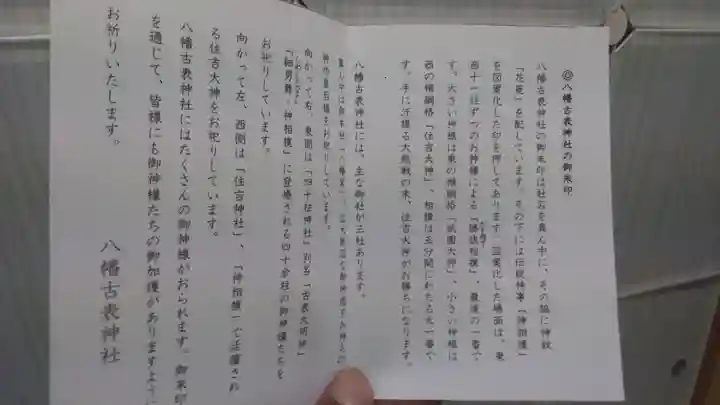 ◎八幡古表神社の御朱印
八幡古表神社の御朱印は社名を真ん中に、その脇に神紋
「花菱」を配しています。その下には伝統神事「神相撲」
を図案化した印を押してあります。図案化した場面は、東
西十一柱ずつのお神様による「勝抜相撲」、最後の一番で
す。大きい神様は東の横綱格「祇園大神」、小さい神様は
西の横綱格「住吉大神」、相撲は五分間にわたる大一番で
す。手に汗握る大熱戦の末、住吉大神がお勝ちになります。
八幡古表神社には、主な御社が三社あります。
神功皇后様をお祀りしています。
向かって右、東側は「四十柱神社」別名「古表大明神」
「細男舞・神相撲」に登場される四十余柱の御神様たちを
お祀りしています。
向かって左、西側は「住吉神社」、「神相撲」で活躍され
る住吉大神をお祀りしています。
八幡古表神社にはたくさんの御神様がおられます。御朱印
を通じて、皆様にも御神様たちの御加護がありますように
お祈りいたします。
八幡古表神社